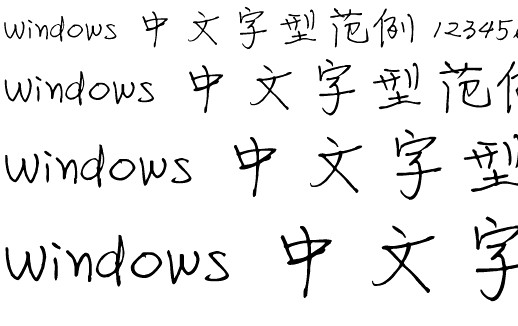 windows 中文字型范例 12345
windows 中文字型范
windows 中文字型
windows 中文字